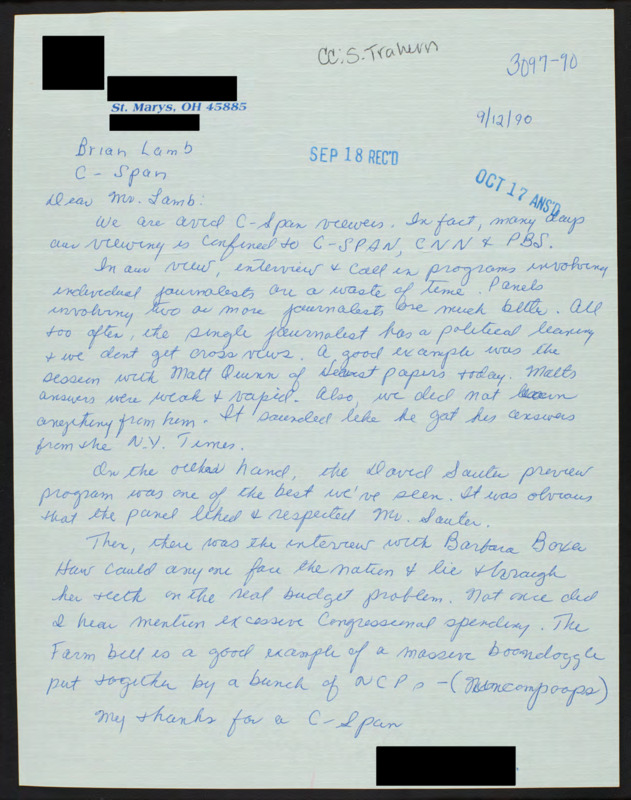 CC: S. Trahern
3097-90
St. Marys, OH 45885
9/12/90
Brian Lamb
C-Span
SEP 18 REC'D
OCT 17 ANS'D
Dear Mr. Lamb:
We are avid C-Span viewers. In fact, many days
our viewing is confined to C-SPAN, CNN & PBS.
In our view, interview & call in programs involving
individual journalists are a waste of time. Panels
involving two or more journalists are much better. All
too often, the single journalist has a political leaning
& we dont get cross views. A good example was the
session with Matt Quinn of Hearst papers today. Matts
answers were weak & vapid. Also, we did not learn
anything from him. It sounded like he got his answers
from the N.Y. Times.
On the other hand, the David Souter preview
program was one of the best we've seen. It was obvious
that the panel liked & respected Mr. Souter.
Then, there was the interview with Barbara Boxer
How could anyone face the nation & lie through
her teeth on the real budget problem. Not once did
I hear mention excessive Congressional spending. The
Farm bill is a good example of a massive boondoggle
put together by a bunch of NCPs - (Nincompoops)
My thanks for a C-Span